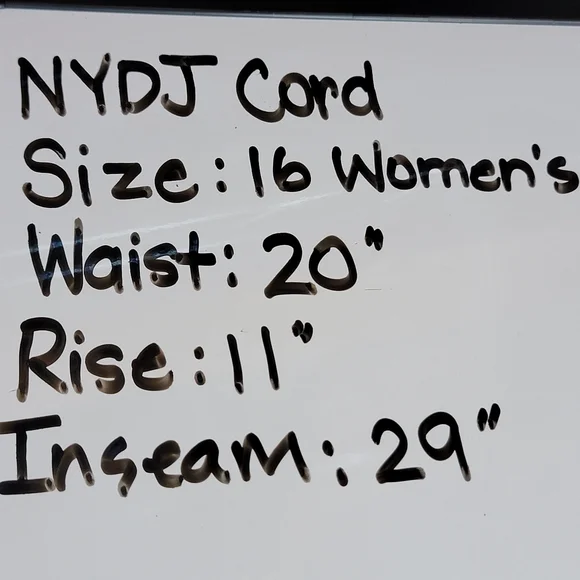 NYDJ Cord
Size: 16 Women's
Waist: 20"
Rise: 11"
Inseam: 29"